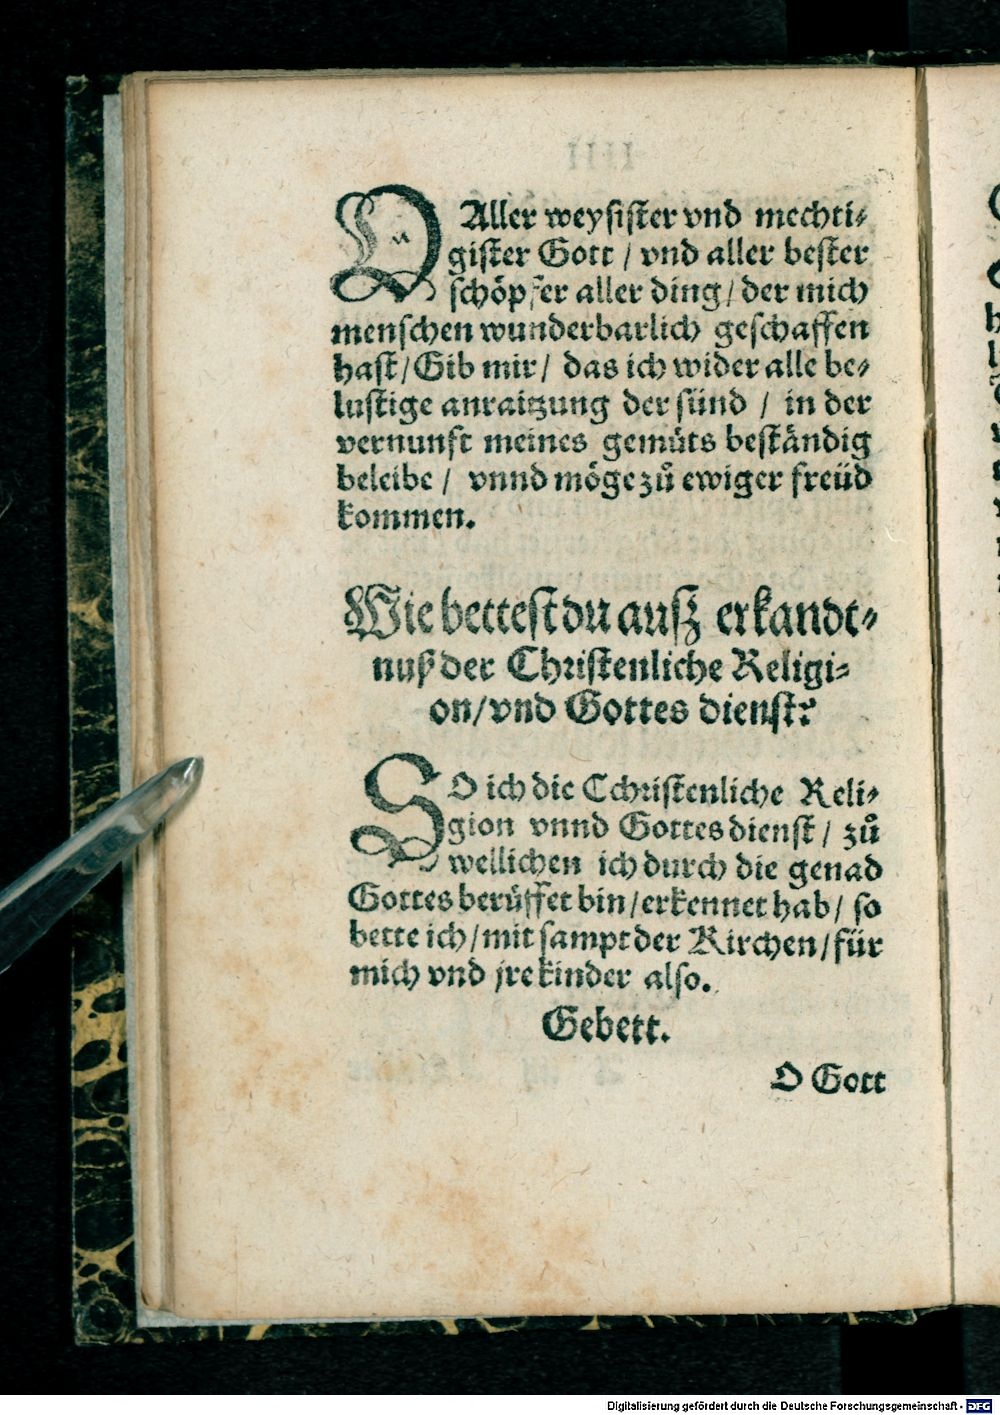 O Aller weysister vnd mechti⸗
gister Gott / vnd aller bester
schöpfer aller ding / der mich
menschen wunderbarlich geschaffen
hast / Gib mir / das ich wider alle be⸗
lustige anraitzung der sünd / in der
vernunft meines gemüts beständig
beleibe / vnnd möge zů ewiger freüd
kommen.
Wie bettest du ausz erkandt⸗
nuß der Christenliche Religi⸗
on / vnd Gottes dienst?
SO ich die Cchristenliche Reli⸗
gion vnnd Gottes dienst / zů
wellichen ich durch die genad
Gottes berüffet bin / erkennet hab / so
bette ich / mit sampt der Kirchen / für
mich vnd jre kinder also.
Gebett.
O Gott
Digitalisierung gefördert durch die Deutsche Forschungsgemeinschaft - DFG